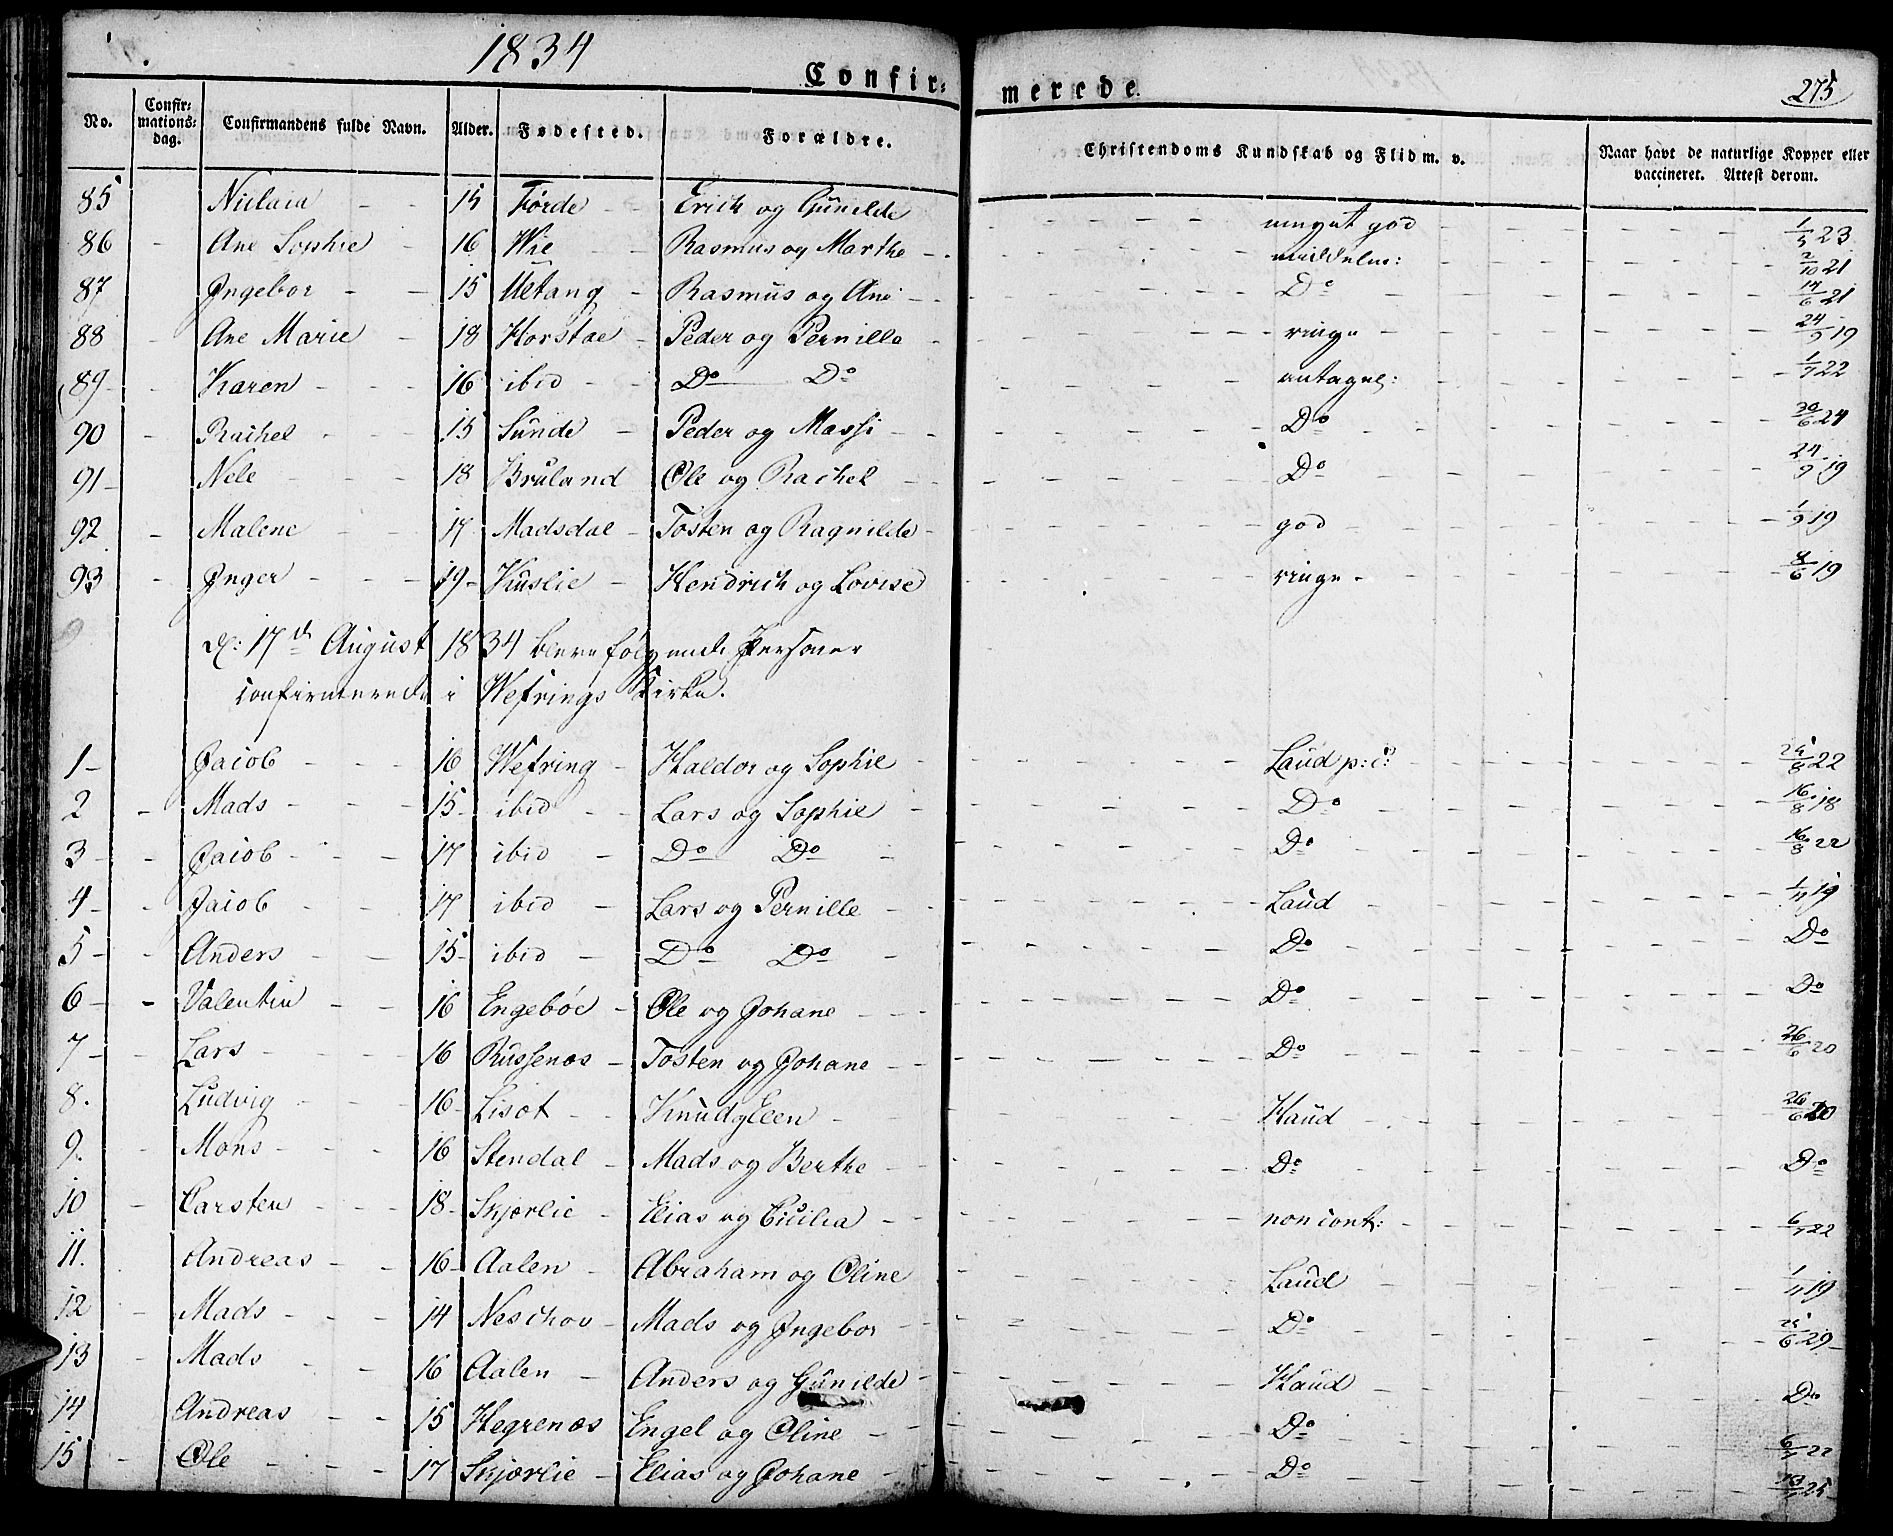 1834
Confir-
merede.
275
No.
Confir-
mations-
dag.
Confirmandens fulde Navn.
Alder.
Fødested.
Forældre.
Christendoms Kundskab og Flid m. v.
Naar havt de naturlige Kopper eller
vaccineret. Attest derom.
85 15 Førde - Erich og Gunilde - meget god - 1/5 23
86 - Ane Sophie - 16 Wie - Rasmus og Marthe - middelm: - 2/10 21
87 Ingebor - 15 Rasmus og Ane - Do - 14/6 21
88 - Ane Marie - 18 Horstae - Peder og Pernille - ringe - 24/9 19
89 - Karen - 16 ibid - Do Do - antagel: - 1/7 22
90 - Rachel - 15 Sunde - Peder og Massi - Do - 30/6 24
91 - Nele - 18 Bruland Ole og Rachel - Do - 24/9 19
92 - Malene - 17 Madsdal - Tosten og Ragnilde - god - 1/9 19
93 - Inger - 19 - Kuslie - Hendrich og Lovise - ringe - 8/6 19
d: 17de August 1834 bleve følgende Personer
confirmerede i Wefrings Kirke.
1 - Jacob - 16 Wefring - Haldor og Sophie - Laud p: c: - 25/8 22
2 - Mads - 15 - ibid - Lars og Sophie - Do - 16/8 18
3 - Jacob - 17 ibid - Do Do - Do - 16/8 22
4 - Jacob - 17 ibid - Lars og Pernille - Laud - 1/4 19
5 - Anders - 15 - ibid - Do Do - Do - Do
6 - Valentin - 16 Engebøe - Ole og Johane - Do - Do
7 - Lars - 16 Russenæs - Tosten og Johane - Do - 26/6 20
8. Ludvig - 16 - Knud g Elen - Haud - 26/6 20
9. Mons - 16 Stendal - Mads og Berthe - Do - Do
10 - Carsten - 18 - Skjærlie - Elias og Cicilia - non cont: - 6/7 22
11. Andreas - 16 - Aalen - Abraham og Oline - Laud - 1/4 19
12 - Mads - 14 Mads og Ingebor - Do - 25/6 29
13 - Mads - 16 Aalen - Anders og Gunilde - Haud - Do
14 Andreas - 15 Hegrenæs Engel og Oline - Do - 6/7 22
15 - Ole - 17 Skjærlie - Elias og Johane - Do